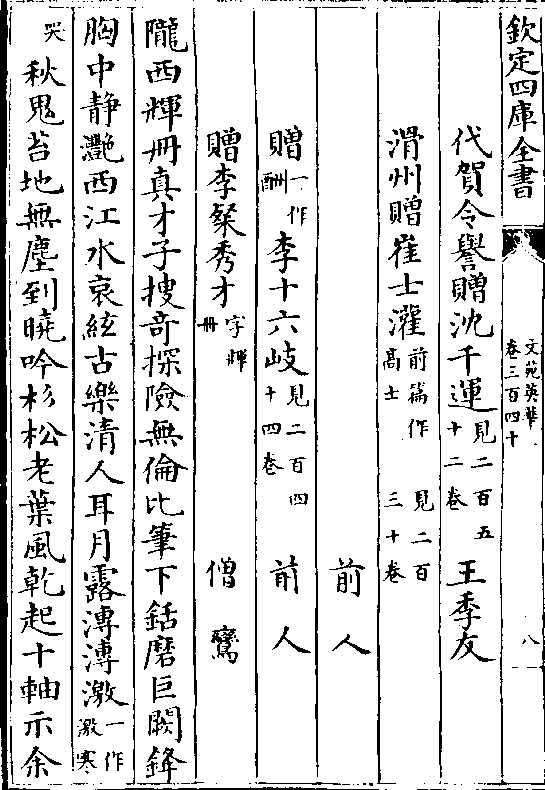 欽定四庫全書
文苑英華
卷三百四十
八
代賀令譽贈沈千運見二百五十二卷 王季友
滑州贈崔士灌前篇作高士 見二百三十卷
前人
贈一作酬李十六岐見二百四十四卷 前人
贈李粲秀才字輝冊 僧鸞
隴西輝冊真才子搜竒探險無倫比筆下銛磨巨闕鋒
胸中静灧西江水哀絃古樂清人耳月露漙漙激一作激寒
哭秋鬼苔地無塵到曉吟杉松老葉風乾起十軸示余